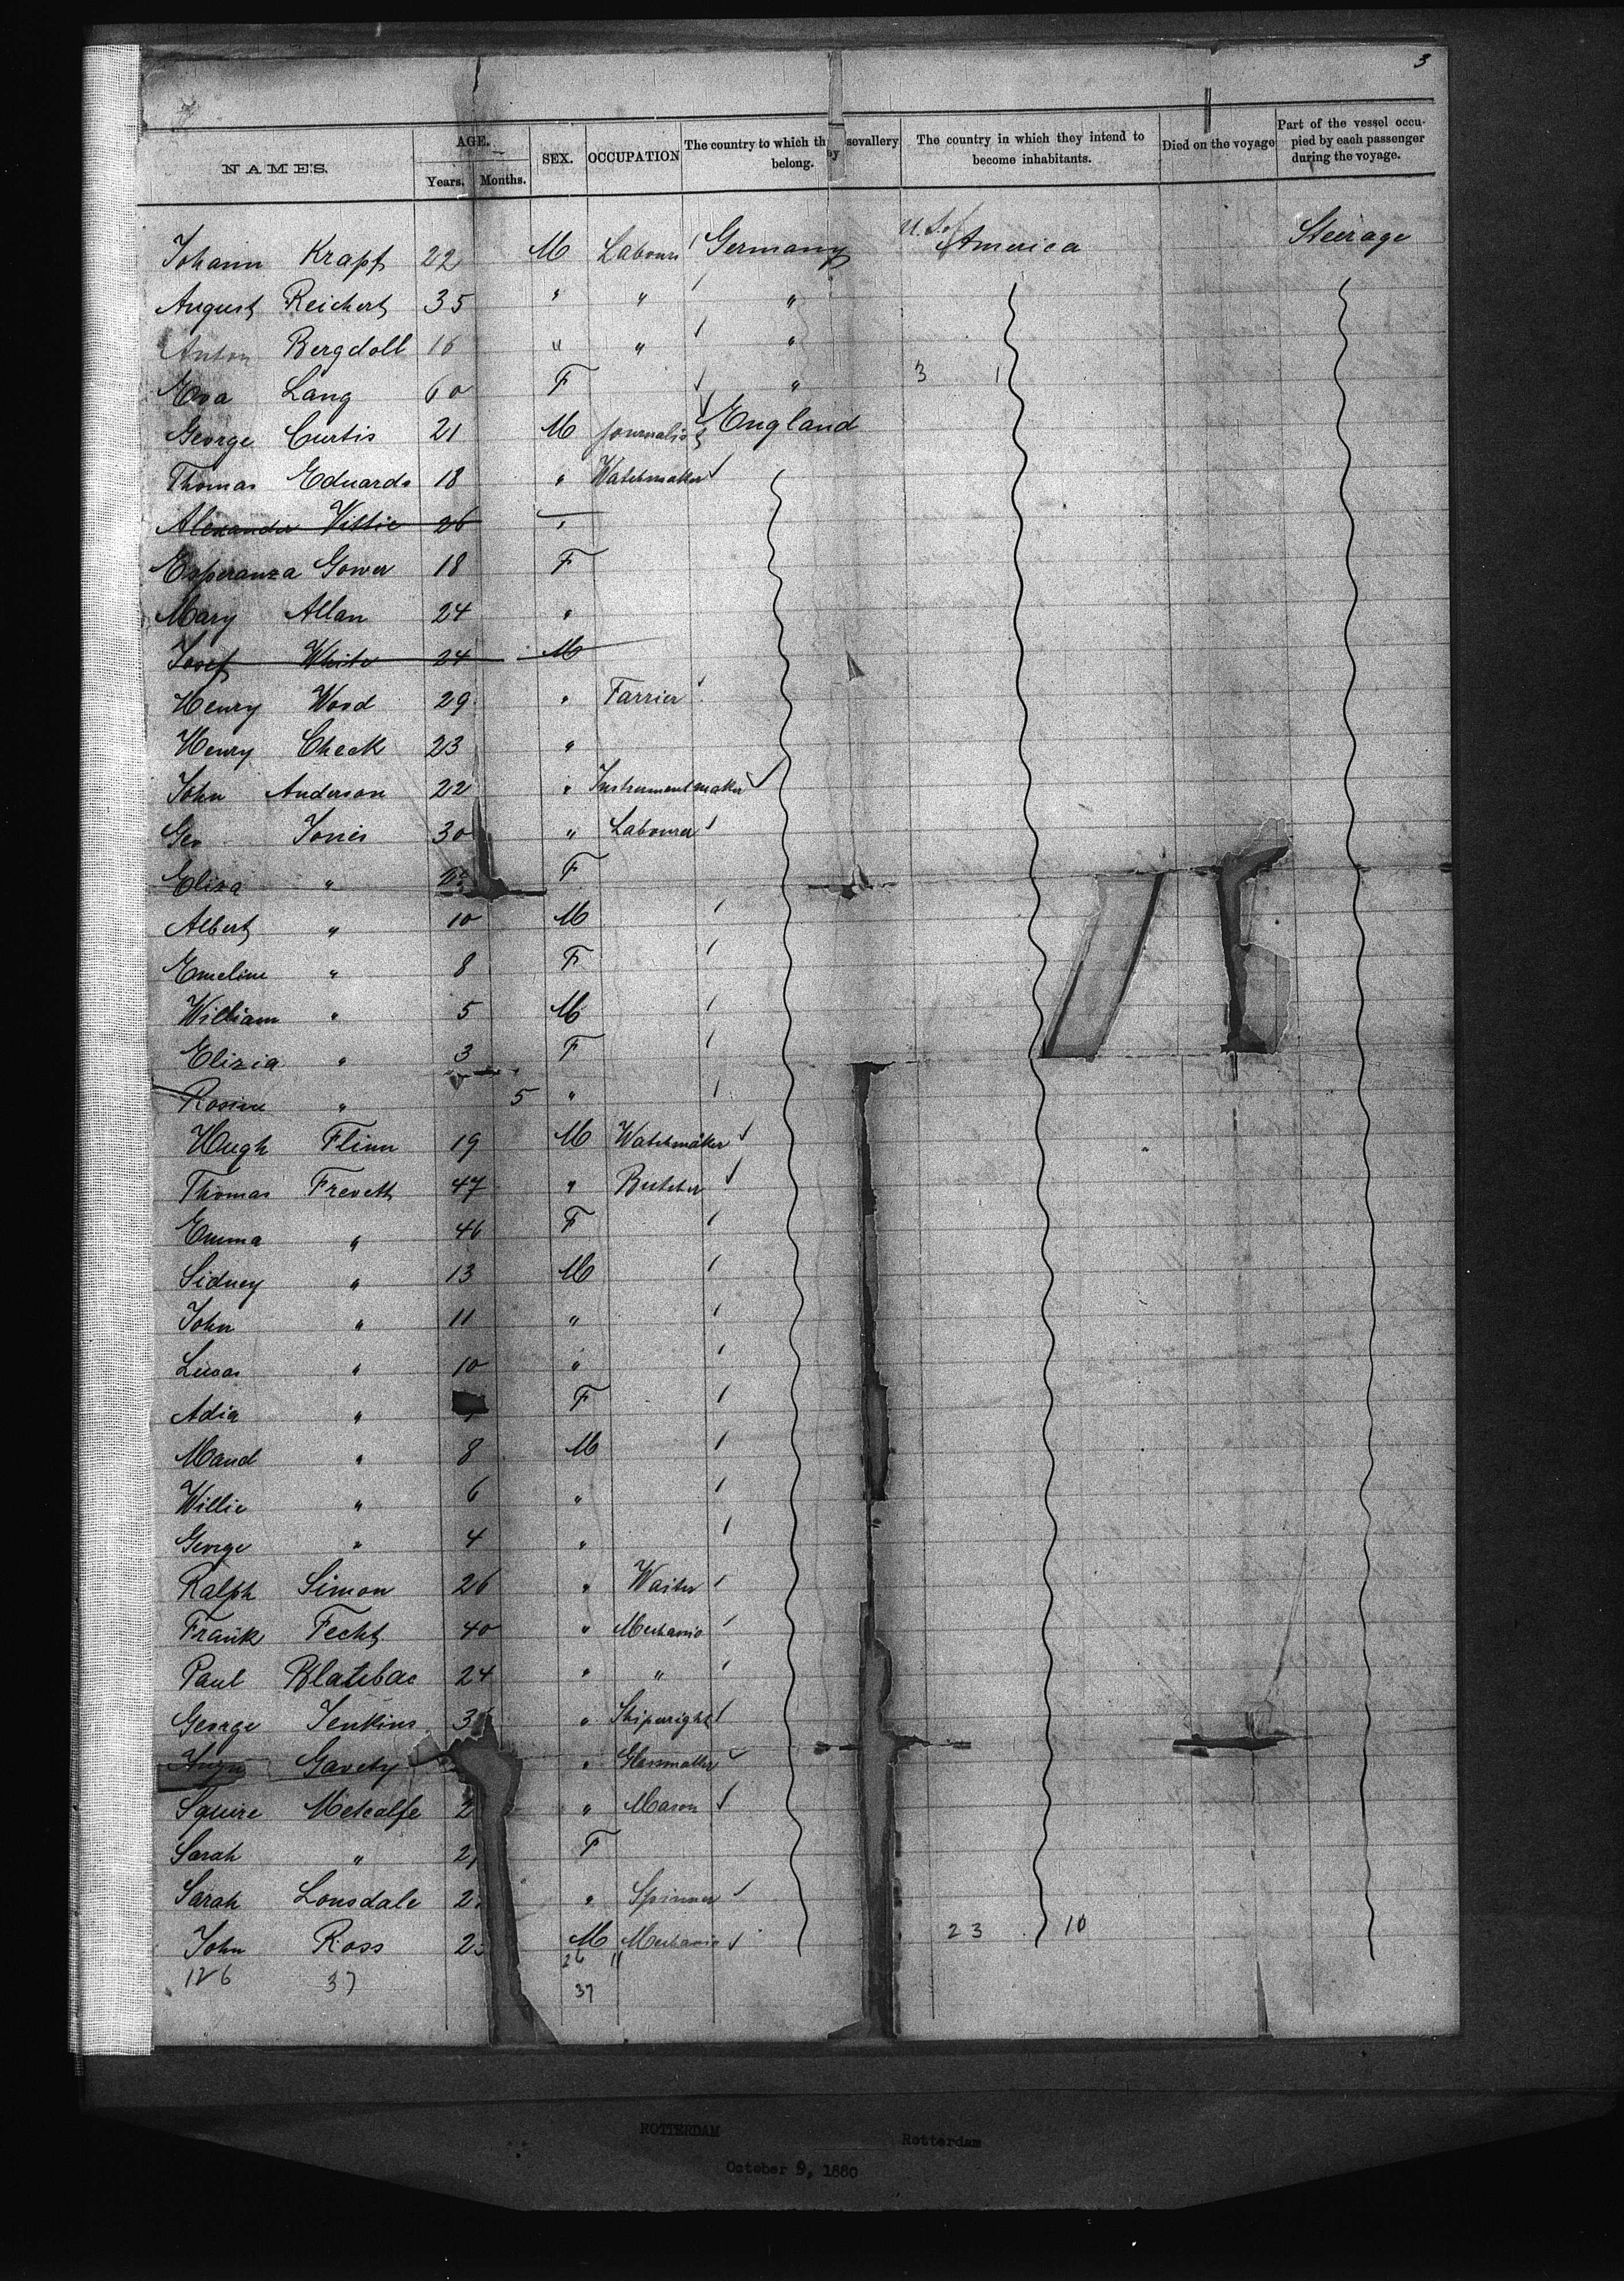 3
NAMES. AGE. Years. Months. SEX. OCCUPATION The country to which th by sevallery belong. The country in which they intend to become inhabitants. Died on the voyage Part of the vessel occupied by each passenger during the voyage.
Johann Krapf 22 M Labour Germany U.S. of America Steerage
August Reichert 35 " " "
Anton Bergdoll 16 " " "
Eva Lang 60 F " 3 1
George Curtis 21 M Journalist England
Thomas Eduards 18 " Watchmaker
Alexander Vittie 26 "
Esperanza Gower 18 F
Mary Allan 24 "
Josef White 24 M
Henry Wood 29 " Farrier
Henry Cheek 23 "
John Anderson 22 " Instrumentmaker
Geo Jones 30 " Labourer
Eliza " F
Albert " 10 M
Emeline " 8 F
William " 5 M
Elizia " 3 F
Rosine " 5 "
Hugh Flinn 19 M Watchmaker
Thomas Frevett 47 " Butcher
Emma " 46 F
Sidney " 13 M
John " 11 "
Lucas " 10 "
Adia " F
Maud " 8 M
Willie " 6 "
George " 4 "
Ralph Simon 26 " Waiter
Frank Fecht 40 " Mechanic
Paul Blatebac 24 " "
George Jenkins 3 " Shipwright
Gavety " Glassmaker
Squire Metcalfe 2 " Mason
Sarah " 2 F
Sarah Lonsdale 2 " Spinner
John Ross 2 M Mechanic 23 10
126 37 26 11
37
ROTTERDAM Rotterdam
October 9, 1880